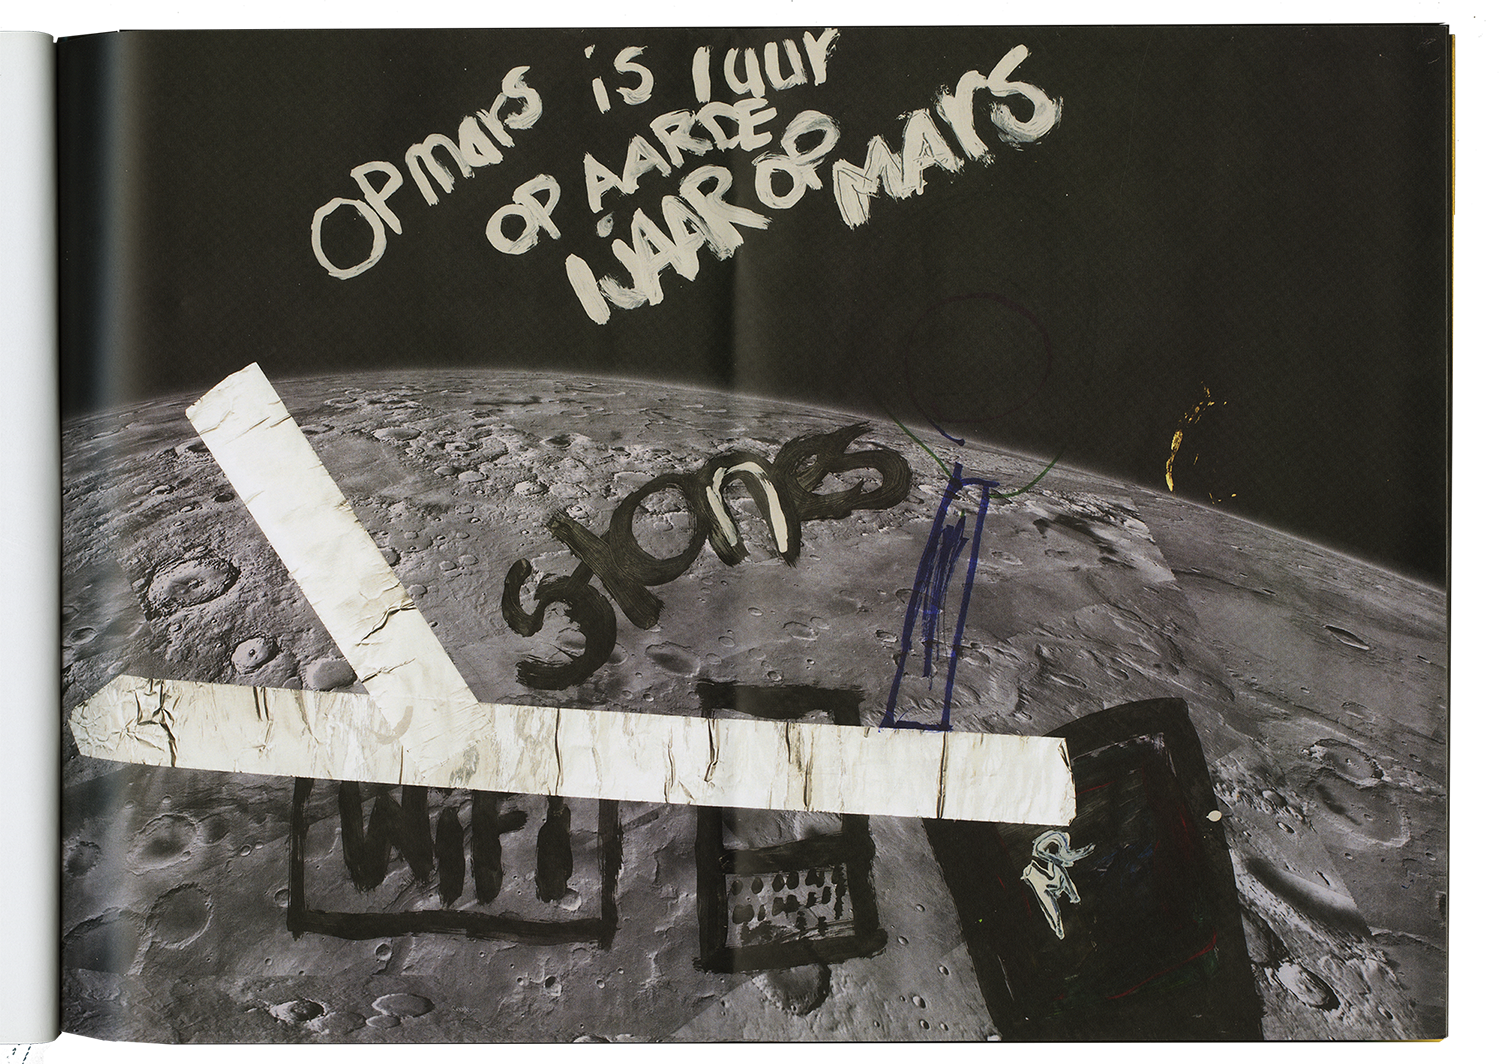 OPmars is 1 uur
OP AARDE
IJAAR OP MARS
stans
WiFi